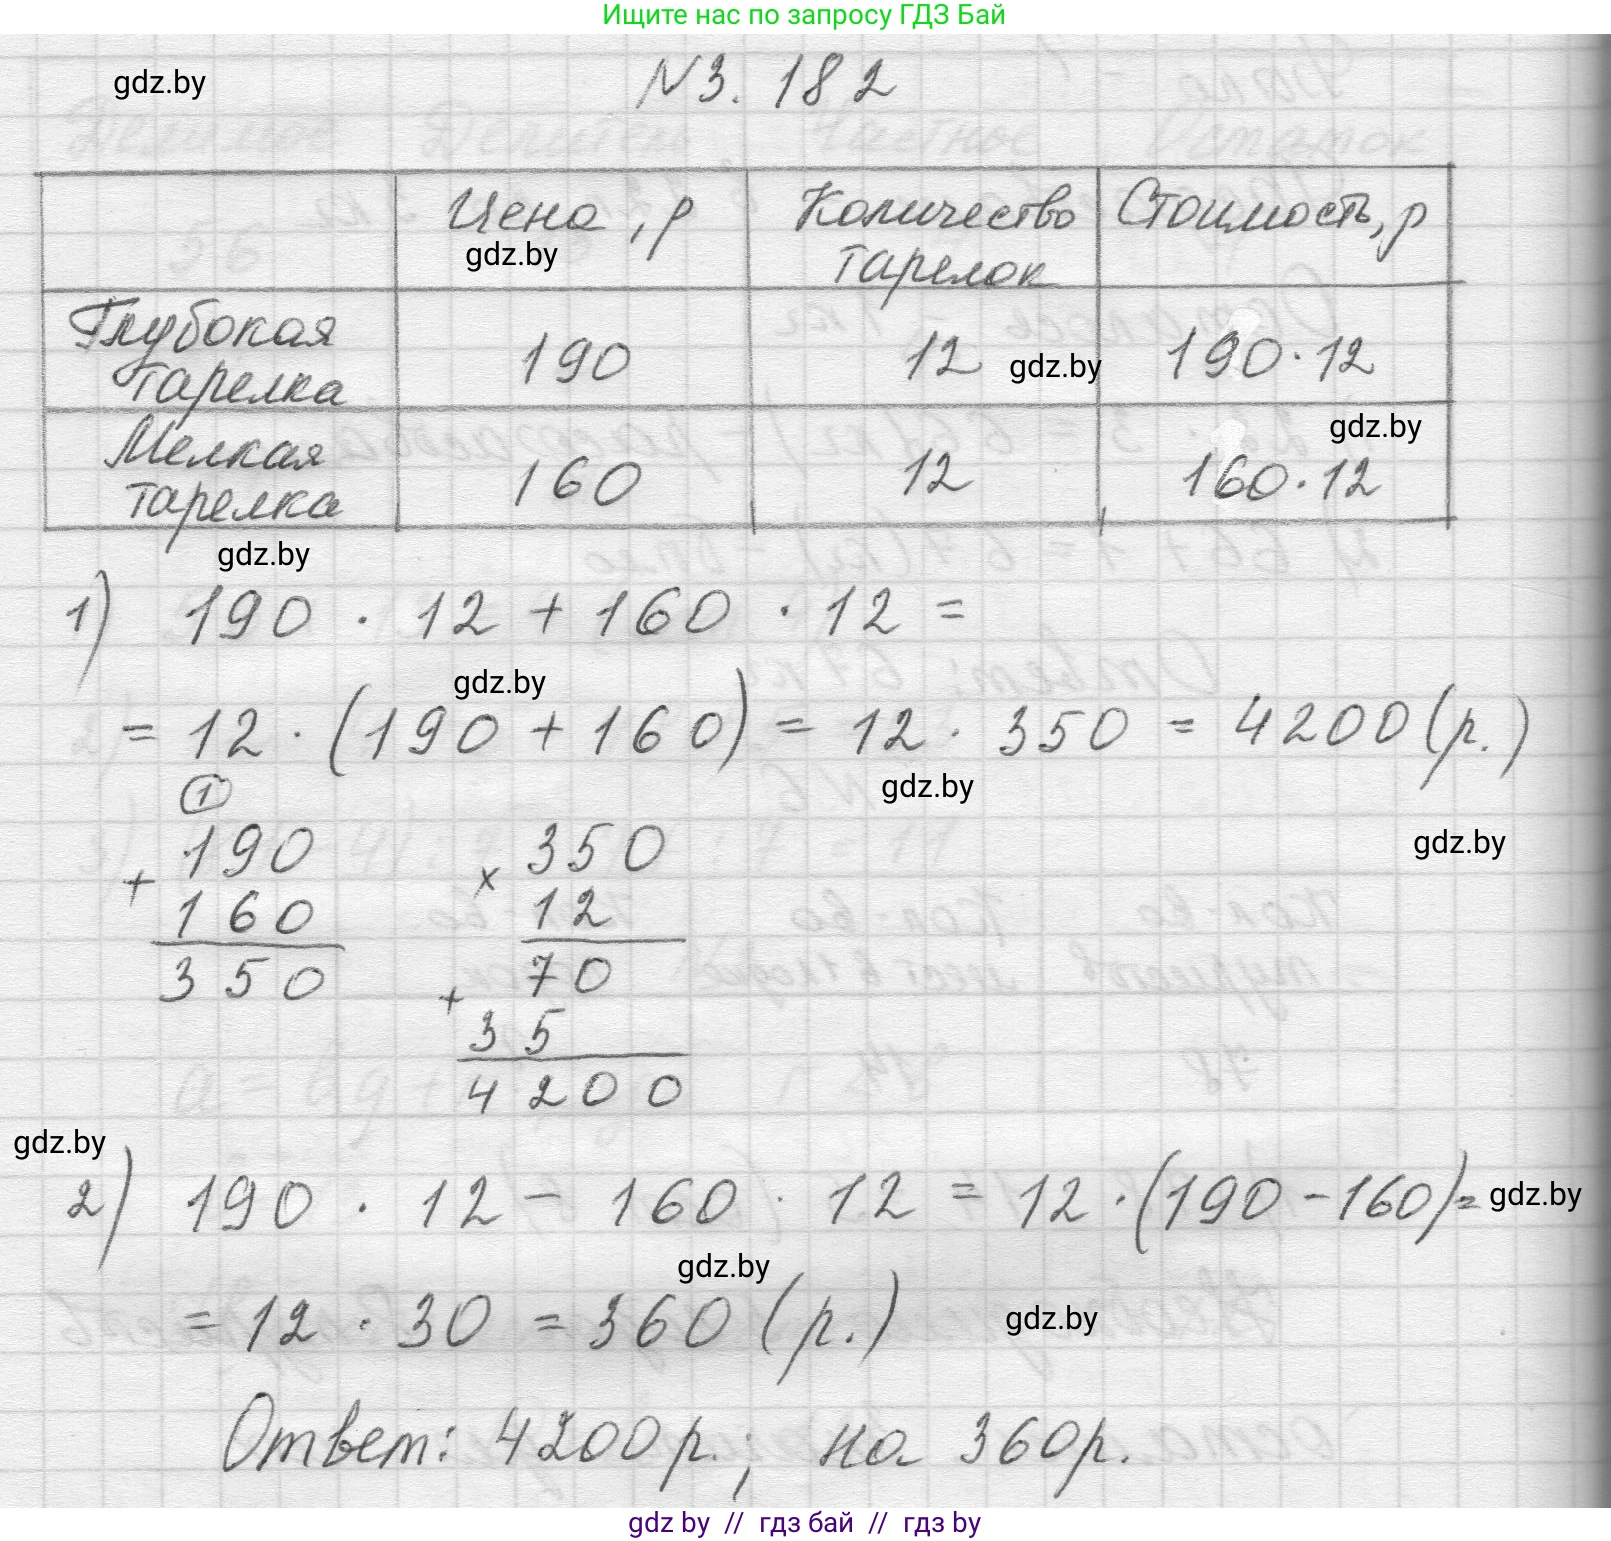 Ищите нас по запросу ГДЗ Бай
gdz.by
N3.182
Цена, р
Количество тарелок
Стоимость, р
gdz.by
Глубокая тарелка
190
12
gdz.by
190·12
Мелкая тарелка
160
12
gdz.by
160·12
gdz.by
1) 190 · 12 + 160 · 12 =
gdz.by
= 12 · (190 + 160) = 12 · 350 = 4200 (р.)
gdz.by
1
gdz.by
190
+
160
350
350
×
12
70
+
35
4200
gdz.by
2) 190 · 12 - 160 · 12 = 12 · (190 - 160) =
gdz.by
gdz.by
= 12 · 30 = 360 (р.)
gdz.by
Ответ: 4200р.; на 360р.
gdz by // гдз бай // гдз by